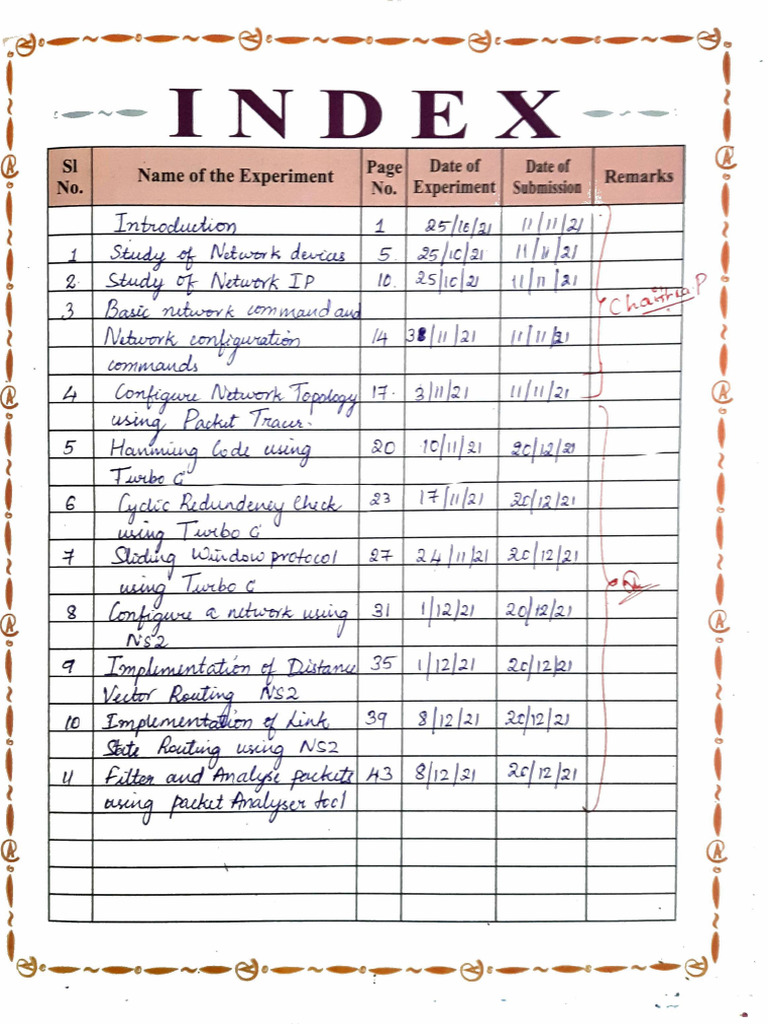 INDEX
Sl No. Name of the Experiment Page No. Date of Experiment Date of Submission Remarks
Introduction 1 25/10/21 11/11/21
1 Study of Network devices 5. 25/10/21 11/11/21
2. Study of Network IP 10. 25/10/21 11/11/21
3 Basic network command and
Network configuration 14 3/11/21 11/11/21
commands
Chaithra.P
4 Configure Network Topology 17. 3/11/21 11/11/21
using Packet Tracer.
5 Hamming Code using 20 10/11/21 20/12/21
Turbo C
6 Cyclic Redundency Check 23 17/11/21 20/12/21
using Turbo C
7 Sliding Window protocol 27 24/11/21 20/12/21
using Turbo C
8 Configure a network using 31 1/12/21 20/12/21
NS2
9 Implementation of Distance 35 1/12/21 20/12/21
Vector Routing NS2
10 Implementation of Link 39 8/12/21 20/12/21
State Routing using NS2
11 Filter and Analyse packets 43 8/12/21 20/12/21
using packet Analyser tool